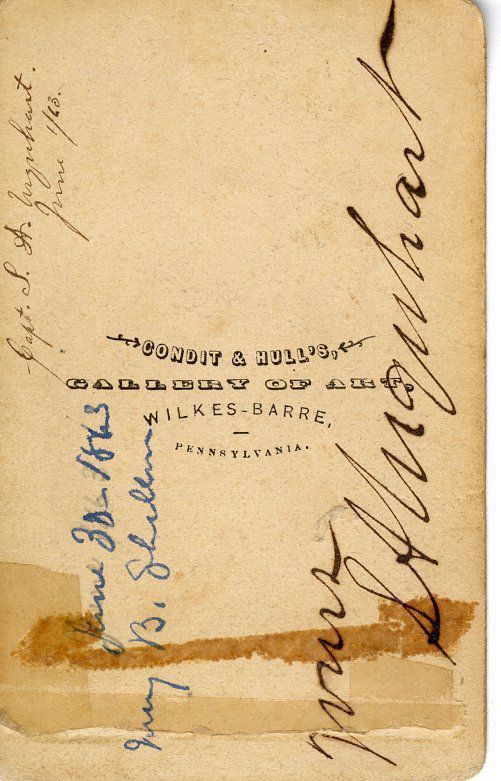 Capt. S. A. Urquhart.
June 1/63.
CONDIT & HULL'S,
GALLERY OF ART,
WILKES-BARRE,
PENNSYLVANIA.
June 30-1863
B.
yours
S A Urquhart